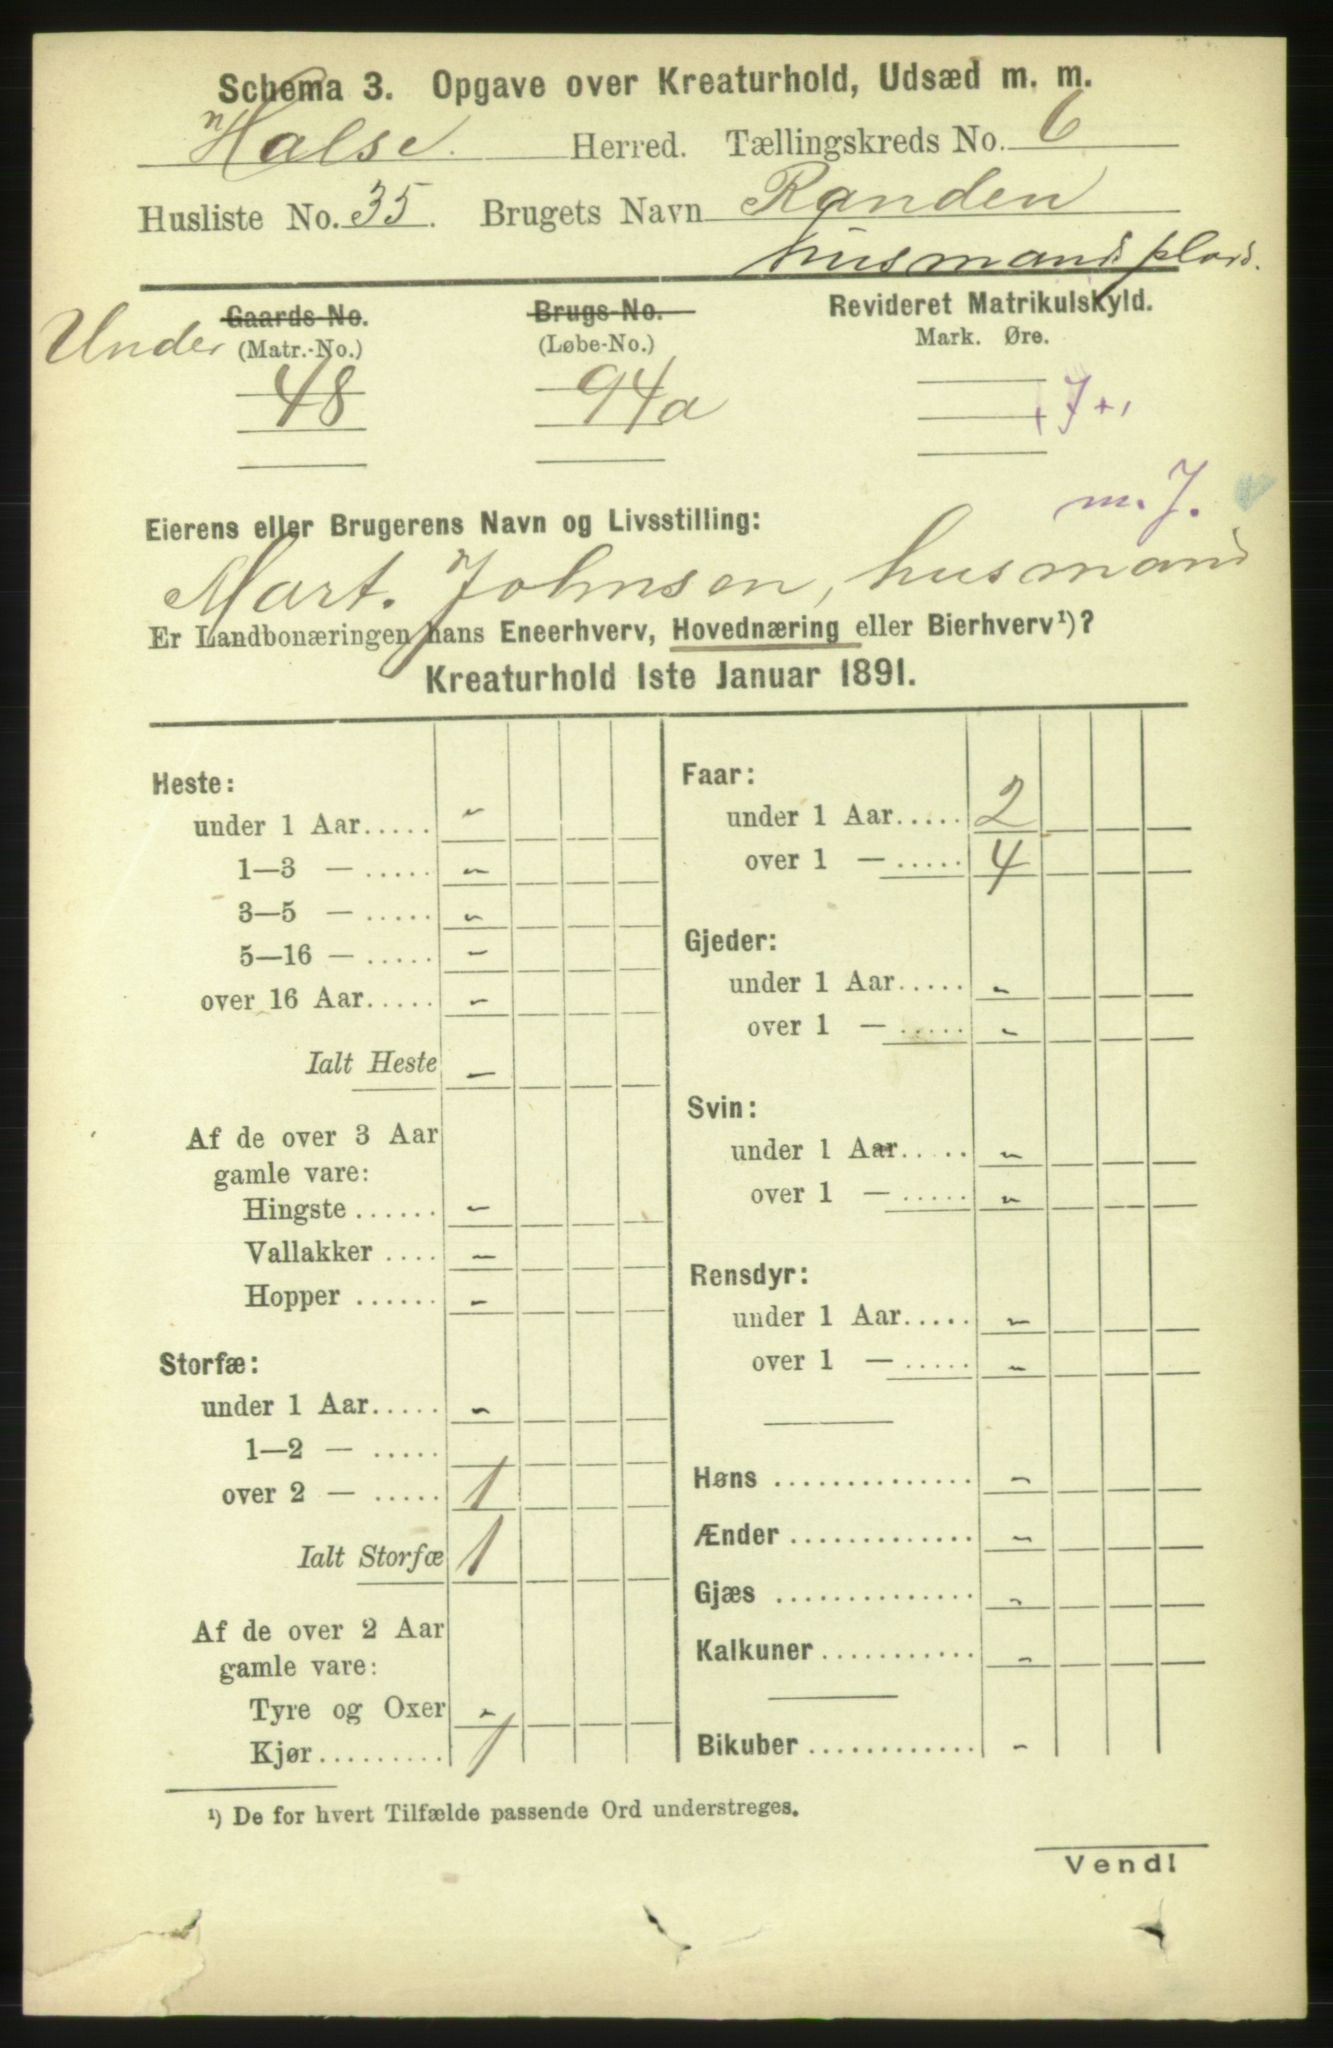 Schema 3. Opgave over Kreaturhold, Udsæd m. m.
Halse Herred. Tællingskreds No. 6
Husliste No. 35. Brugets Navn Randen
husmandsplads.
Under Gaards-No. Brugs-No. Revideret Matrikulskyld.
(Matr.-No.) (Løbe-No.) Mark. Øre.
48 94a
m. J.
Eierens eller Brugerens Navn og Livsstilling:
Mart. Johnsen, husmand
Er Landbonæringen hans Eneerhverv, Hovednæring eller Bierhverv¹)?
Kreaturhold 1ste Januar 1891.
Heste:
under 1 Aar..... -
1—3 — ..... -
3—5 — ..... -
5—16 — ..... -
over 16 Aar..... -
Ialt Heste -
Af de over 3 Aar
gamle vare:
Hingste ...... -
Vallakker .... -
Hopper ...... -
Storfæ:
under 1 Aar..... -
1—2 — .....
over 2 — ..... 1
Ialt Storfæ 1
Af de over 2 Aar
gamle vare:
Tyre og Oxer -
Kjør......... 1
Faar:
under 1 Aar..... 2
over 1 — ..... 4
Gjeder:
under 1 Aar..... -
over 1 — ..... -
Svin:
under 1 Aar..... -
over 1 — ..... -
Rensdyr:
under 1 Aar..... -
over 1 — ..... -
Høns .............. -
Ænder ............. -
Gjæs .............. -
Kalkuner ........... -
Bikuber ............ -
¹) De for hvert Tilfælde passende Ord understreges.
Vend!